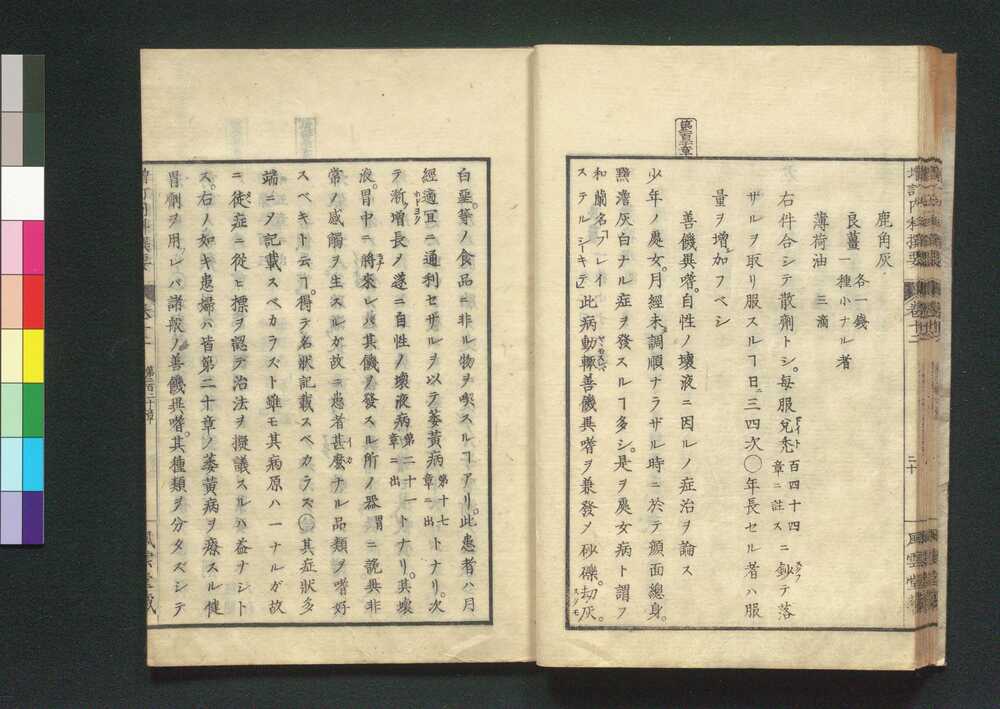 鹿角灰 各一錢
良薑 一種小ナル者
薄荷油 三滴
右件合シテ散劑トシ。每服兌禿百四十四章ニ註スニ鈔テ落
ザルヲ取リ服スルヿ日ニ三四次〇年長セル者ハ服
量ヲ增加フベシ
善饑異嗜。自性ノ壞液ニ因ルノ症治ヲ論ス
少年ノ處女。月經未調順ナラザル時ニ於テ顏面總身。
黯澹灰白ナル症ヲ發スルヿ多シ。是ヲ處女病ト謂フ
和蘭名「ブレイ
ステルシーキテ」此病動輙善饑異嗜ヲ兼發ノ砂礫。刧灰。
白堊。等ノ食品ニ非ル物ヲ喫スルヿアリ。此患者ハ月
經適冝ニ通利セザルヲ以テ萎黃病第十七章ニ出トナリ。次
テ漸ク增長ノ遂ニ自性ノ壞液病第二十一章ニ出トナリ。其壞
液。胃中ニ將來レバ其饑ヲ發スル所ノ器胃ニ詭異非
常ノ感觸ヲ生スルガ故ニ患者甚麼ナル品類ヲ嗜好
スベキト云ヿ。得テ名狀記載スベカラズ〇其症狀多
端ニノ記載スベカラズト雖モ其病原ハ一ナルガ故
ニ徒症ニ從ヒ標ヲ認テ治法ヲ擬議スルハ益ナシト
ス。右ノ如キ患婦ハ皆第二十章ノ萎黃病ヲ療スル健
胃劑ヲ用フレバ諸般ノ善饑異嗜。其種類ヲ分タズシテ
卷十二
二十
風雲堂藏
第二百二十章